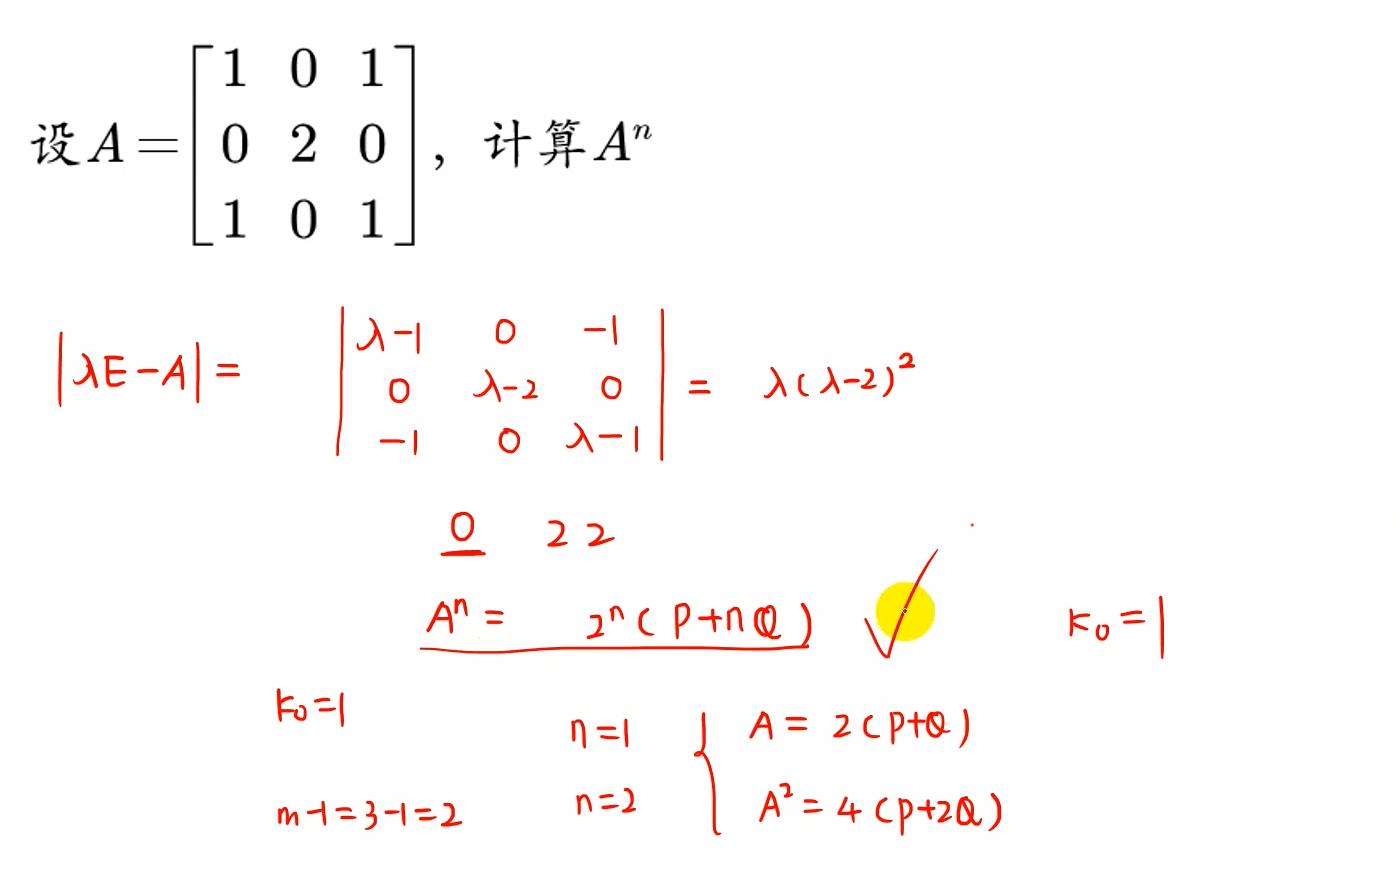 设 A = [1 0 1
0 2 0
1 0 1], 计算 Aⁿ
|λE-A| = |λ-1 0 -1
0 λ-2 0
-1 0 λ-1| = λ(λ-2)²
0 2 2
Aⁿ = 2ⁿ(P+nQ)
K₀=1
K₀=1
n=1 { A = 2(P+Q)
m-1=3-1=2
n=2 A² = 4(P+2Q)